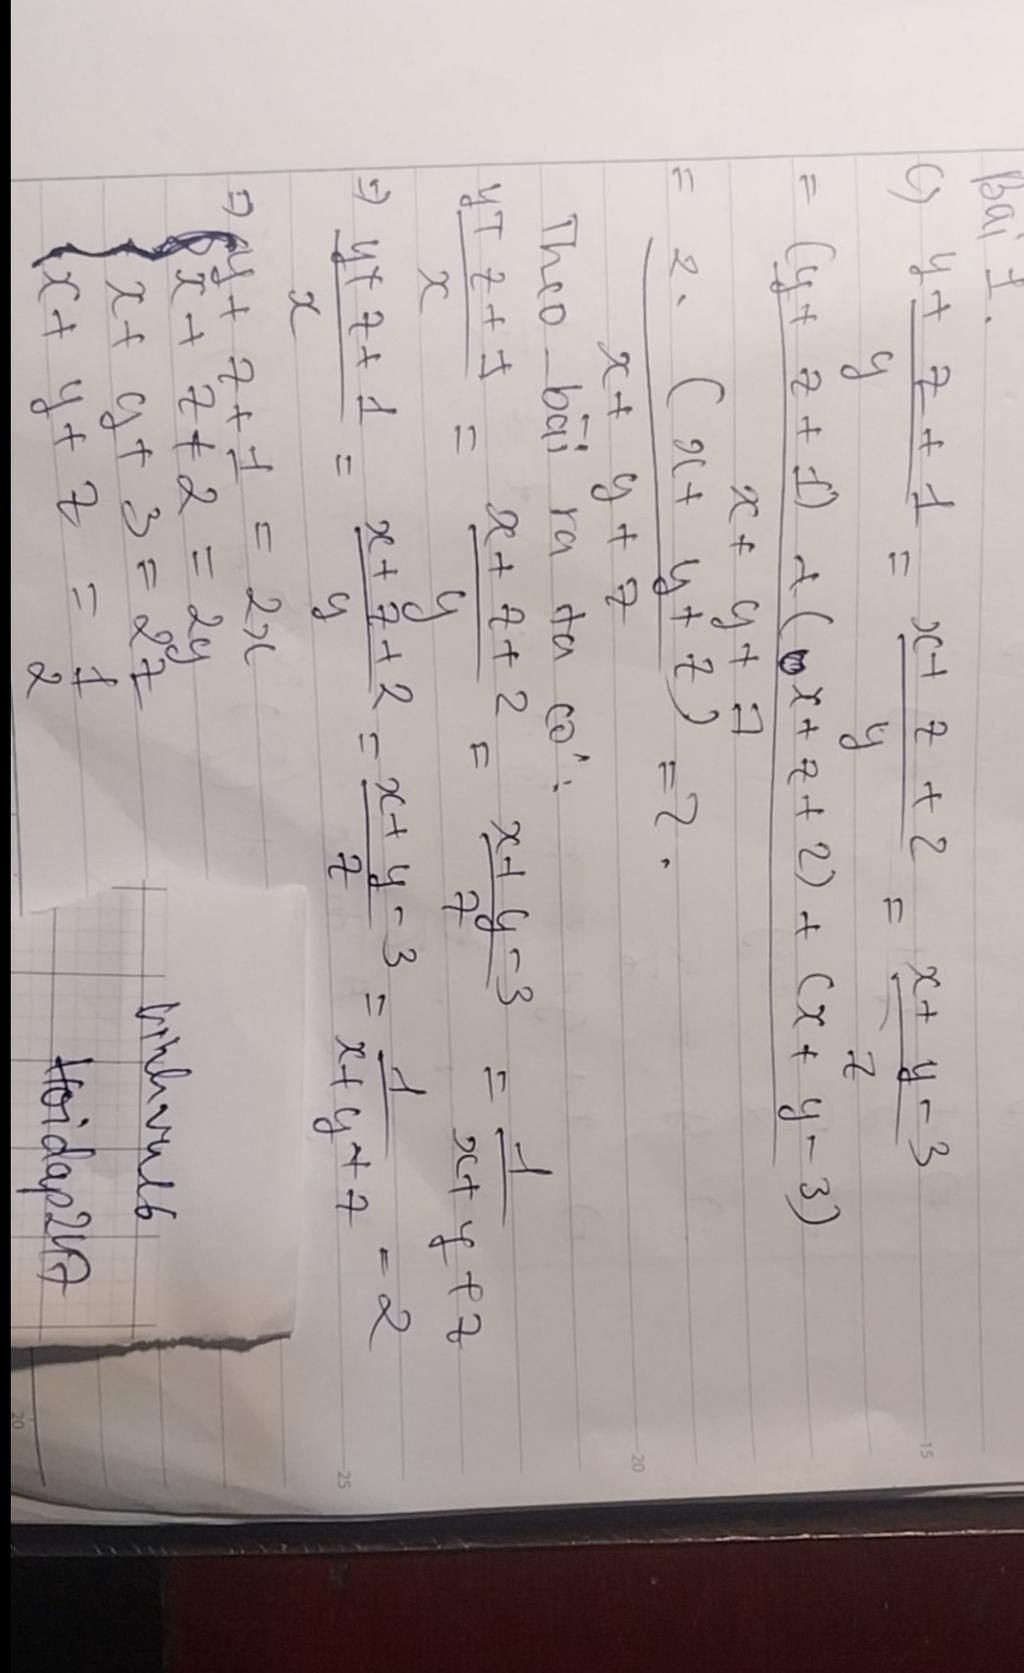 Bài 1.
c) y+z+1/y = x+z+2/y = x+y-3/z
= (y+z+1)+(x+z+2)+(x+y-3)/x+y+z
= 2.(x+y+z)/x+y+z = 2.
Theo bài ra ta có:
y+z+1/x = x+z+2/y = x+y-3/z = 1/x+y+z
=> y+z+1/x = x+z+2/y = x+y-3/z = 1/x+y+z = 2
=> y+z+1 = 2x
x+z+2 = 2y
x+y+3 = 2z
x+y+z = 1/2
Hoidap247
15
20
25
20